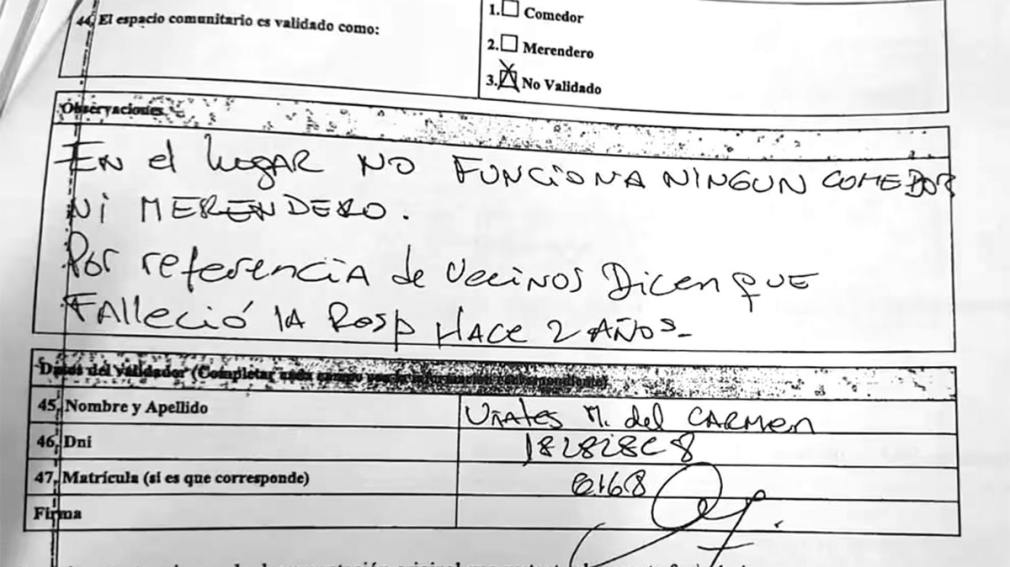 44. El espacio comunitario es validado como:
1. Comedor
2. Merendero
3. No Validado
Observaciones
EN el lugar NO FUNCIONA NINGUN COMEDOR
NI MERENDERO.
Por referencia de vecinos Dicen QUE
Falleció lA Resp HACE 2 AÑOS-
Datos del validador (Completar cada campo con la información correspondiente)
45. Nombre y Apellido
M. del CARMEN
46. Dni
47. Matrícula (si es que corresponde)
Firma